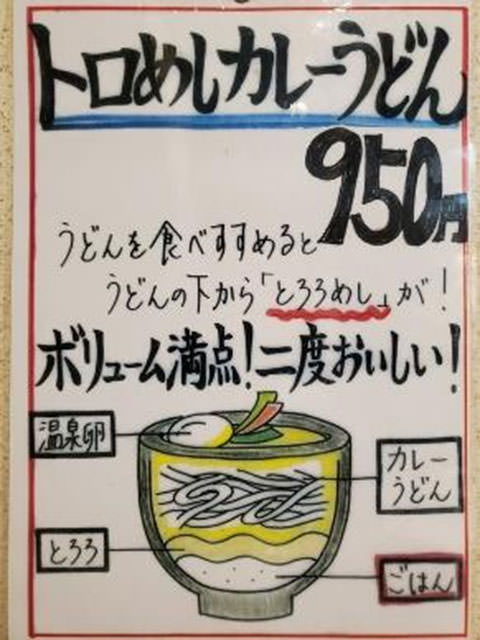 トロめしカレーうどん
950円
うどんを食べすすめると
うどんの下から「とろろめし」が!
ボリューム満点!二度おいしい!
温泉卵
カレー
うどん
とろろ
ごはん